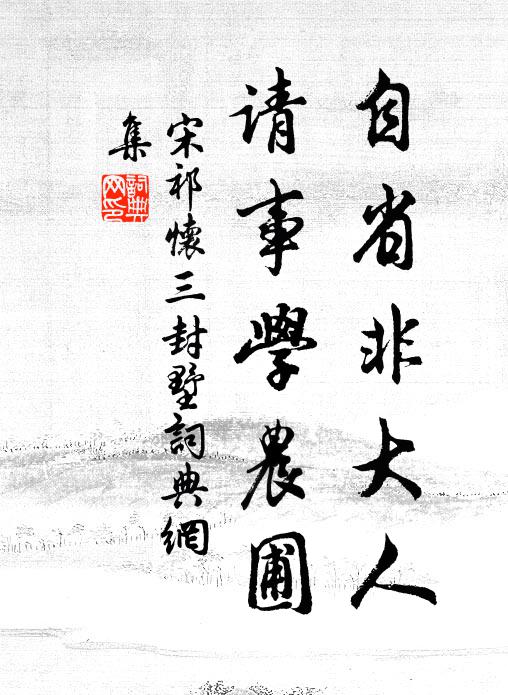 自省非大人
请事學農圃
宋祁懷三封墅詞典網
集
詞典
网印